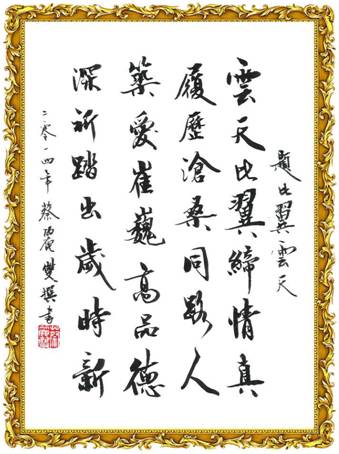 題比翼雲天
雲天比翼締情真
履歷滄桑同路人
築愛崔巍高品德
深祈踏出歲時新
二零一四年 蔡麗双撰書